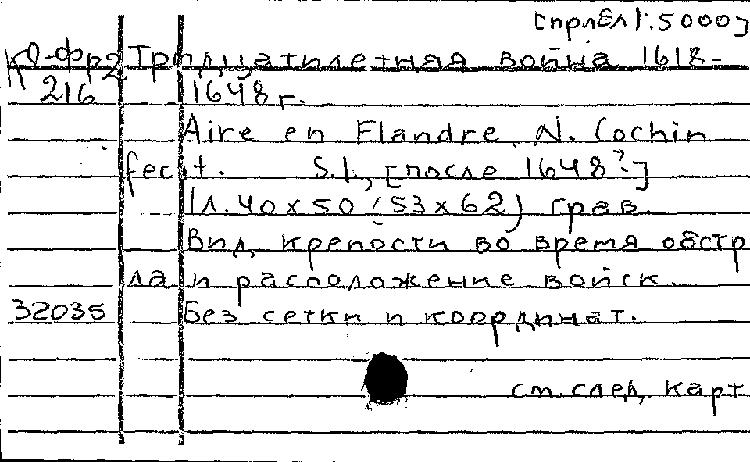 [прибл 1:5000]
КО-Фр2 Тридцатилетняя война 1618-
216 1648 г.
Aire en Flandre. N. Cochin
fecit. S.l., [после 1648?]
1 л. 40х50 (53х62) грав.
Вид крепости во время обстр
ла и расположение войск.
32035 Без сетки и координат.
см. след. карт